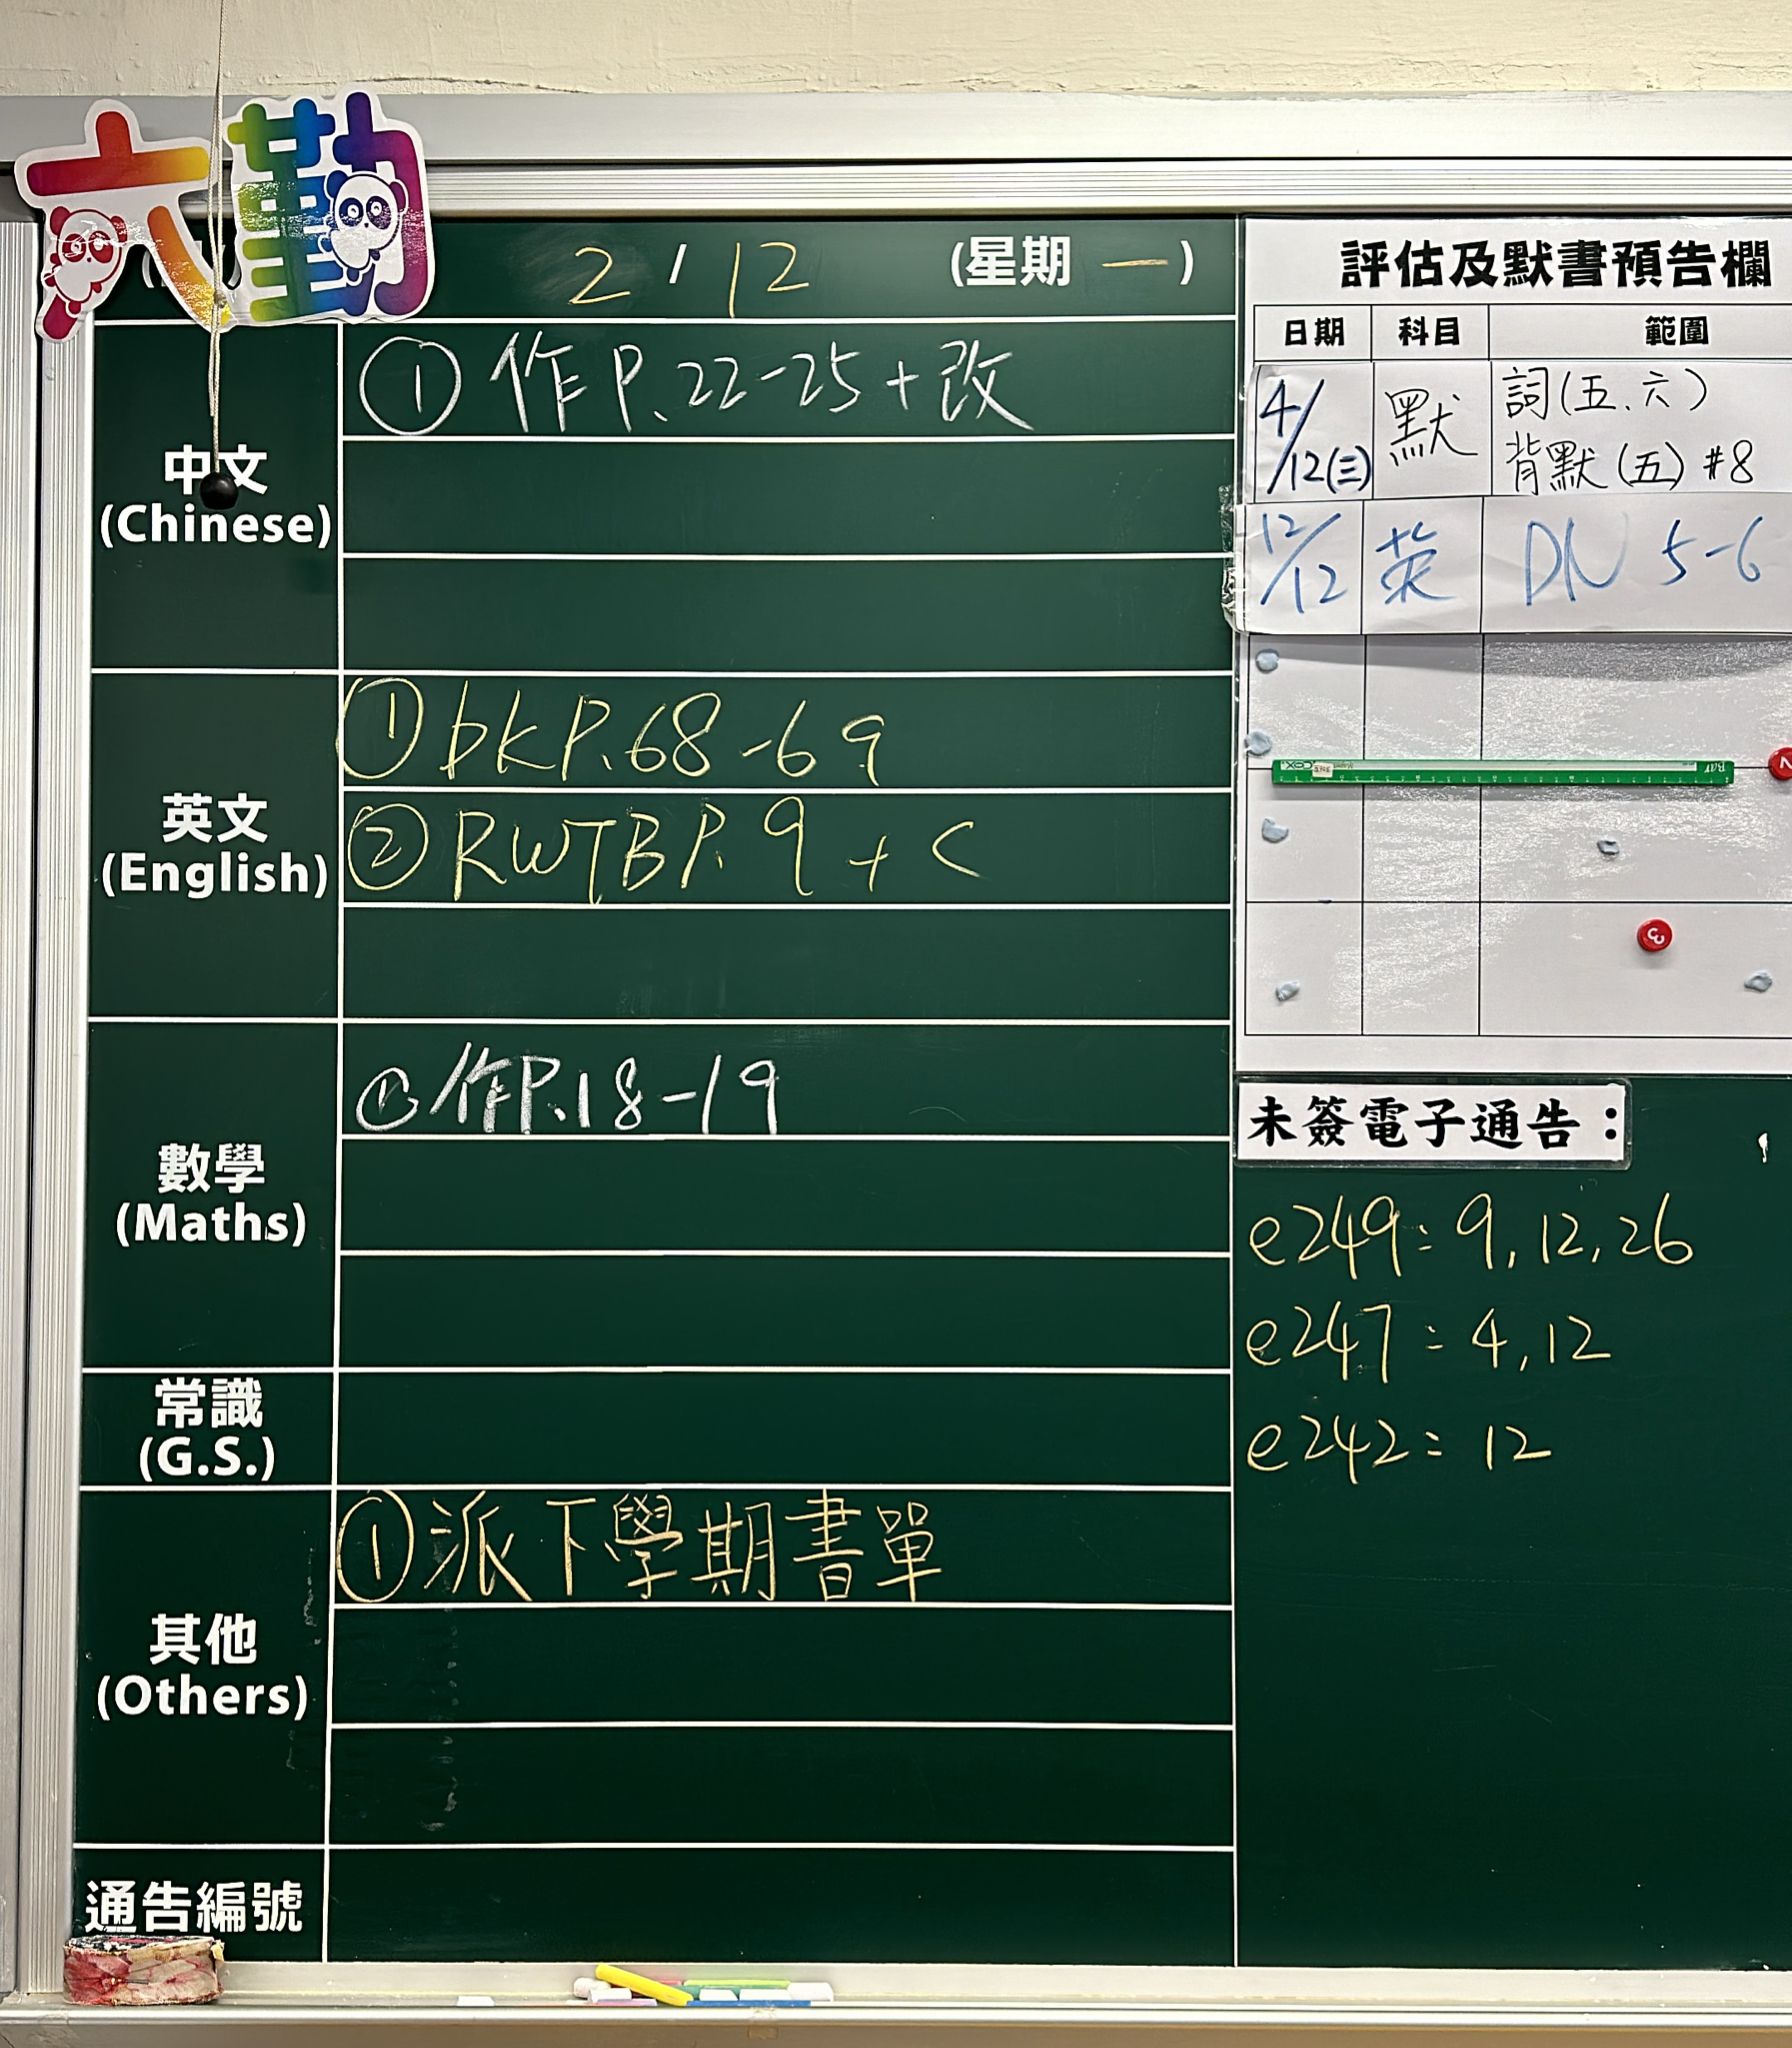 六勤
2 / 12 (星期一)
中文
(Chinese)
① 作P.22-25+改
英文
(English)
① bkP.68-69
② RWTBP.9 + c
數學
(Maths)
① 作P.18-19
常識
(G.S.)
其他
(Others)
① 派下學期書單
通告編號
評估及默書預告欄
日期 科目 範圍
4/12(三) 默 詞(五、六)
背默(五) #8
12/12 英 DN 5-6
未簽電子通告：
e249: 9, 12, 26
e247: 4, 12
e242: 12